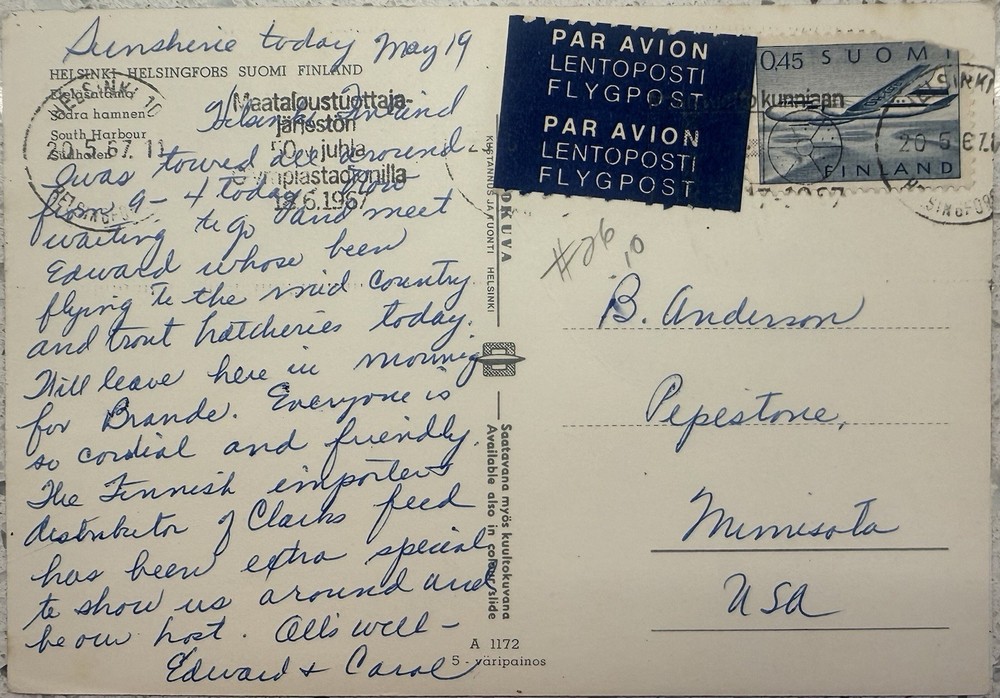 Sunsherie today May 19
HELSINKI HELSINGFORS SUOMI FINLAND
Eteläsatama
Södra hamnen
South Harbour
Südhafen
HELSINKI 10
20.5.67. 11
HELSINGFORS
Maataloustuottaja-
järjestön
50-v juhla
Olympiastadionilla
18.6.1967
Helsinki Finland
I was towed all around
from 9 - 4 today. Now
waiting to go and meet
Edward whose been
flying to the mid country
and trout hatcheries today.
Will leave here in morning
for Brande. Everyone is
so cordial and friendly.
The Finnish importers
distributor of Clarks feed
has been extra special
to show us around and
be our host. All's well -
Edward + Carol
KUSTANNUS JA KUONTI HELSINKI
OKUVA
Saatavana myös kuultokuvana
Available also in colour/slide
A 1172
5 - väripainos
PAR AVION
LENTOPOSTI
FLYGPOST
PAR AVION
LENTOPOSTI
FLYGPOST
0,45 SUOMI
kunniaan
FINLAND
20 5 67.
#26
10
B. Anderson
Pepestone,
Minnisota
USA